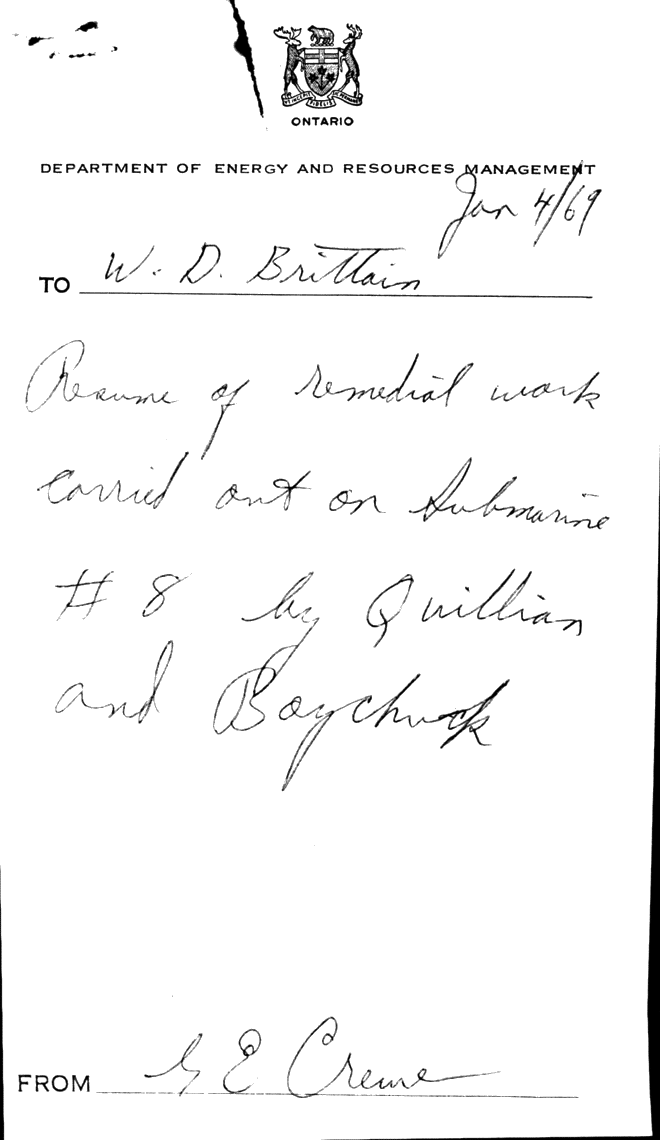 ONTARIO
DEPARTMENT OF ENERGY AND RESOURCES MANAGEMENT
Jan 4/69
TO W. D. Brittain
Resume of remedial work
carried out on Submarine
# 8 by Quillian
and Boychuck
FROM G E Creme